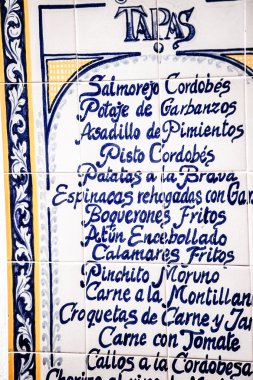 TAPAS
Salmorejo Cordobés
Potaje de Garbanzos
Asadillo de Pimientos
Pisto Cordobés
Patatas a la Brava
Espinacas rehogadas con Gar
Boquerones Fritos
Atún Encebollado
Calamares Fritos
Pinchito Moruno
Carne a la Montillan
Croquetas de Carne y Ja
Carne con Tomate
Callos a la Cordobesa